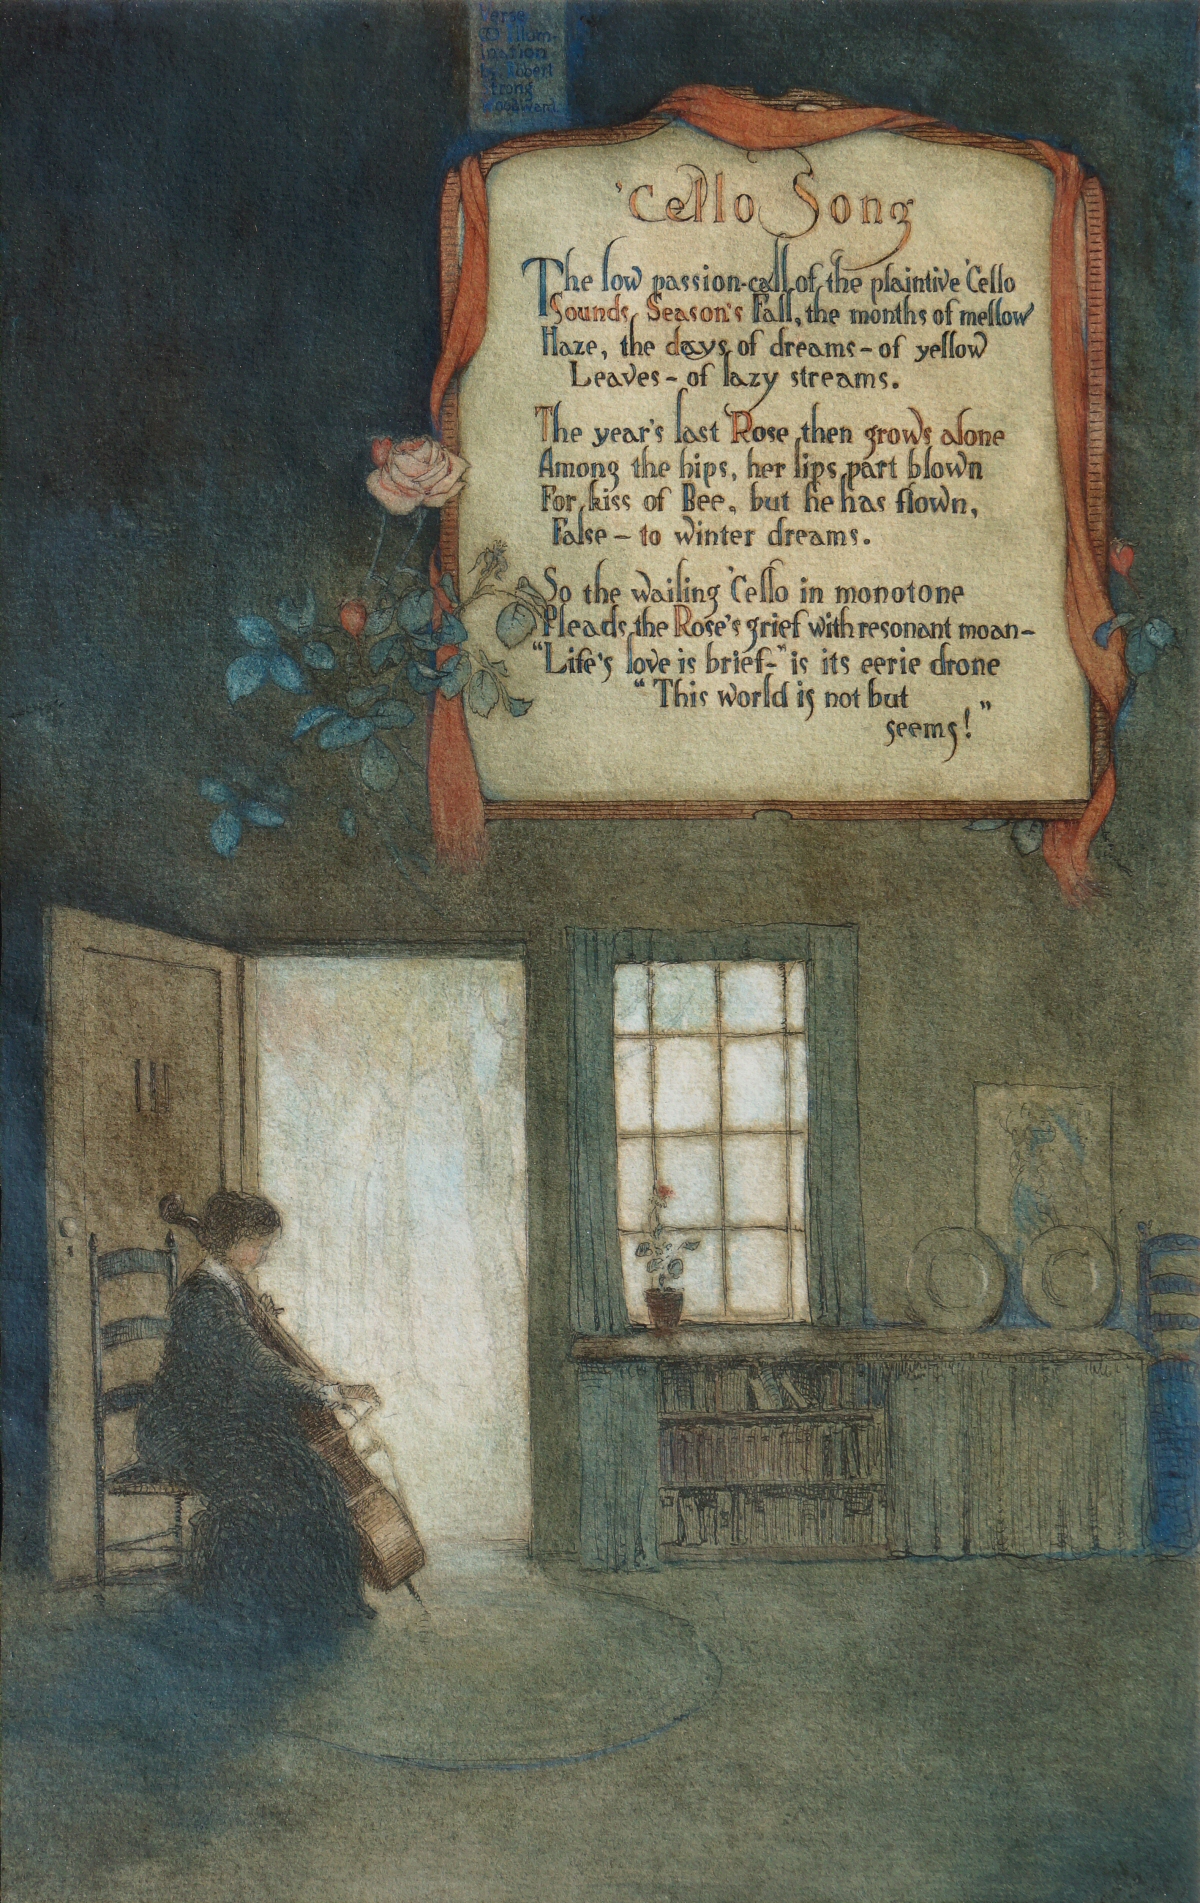 Verse
& Illum-
ination
by Robert
Strong
Woodward.
'Cello Song
The low passion-call of the plaintive 'Cello
Sounds Season's Fall, the months of mellow
Haze, the days of dreams - of yellow
Leaves - of lazy streams.
The year's last Rose then grows alone
Among the hips, her lips part blown
For kiss of Bee, but he has flown,
False - to winter dreams.
So the wailing 'Cello in monotone
Pleads the Rose's grief with resonant moan -
"Life's love is brief-" is its eerie drone
"This world is not but
seems!"